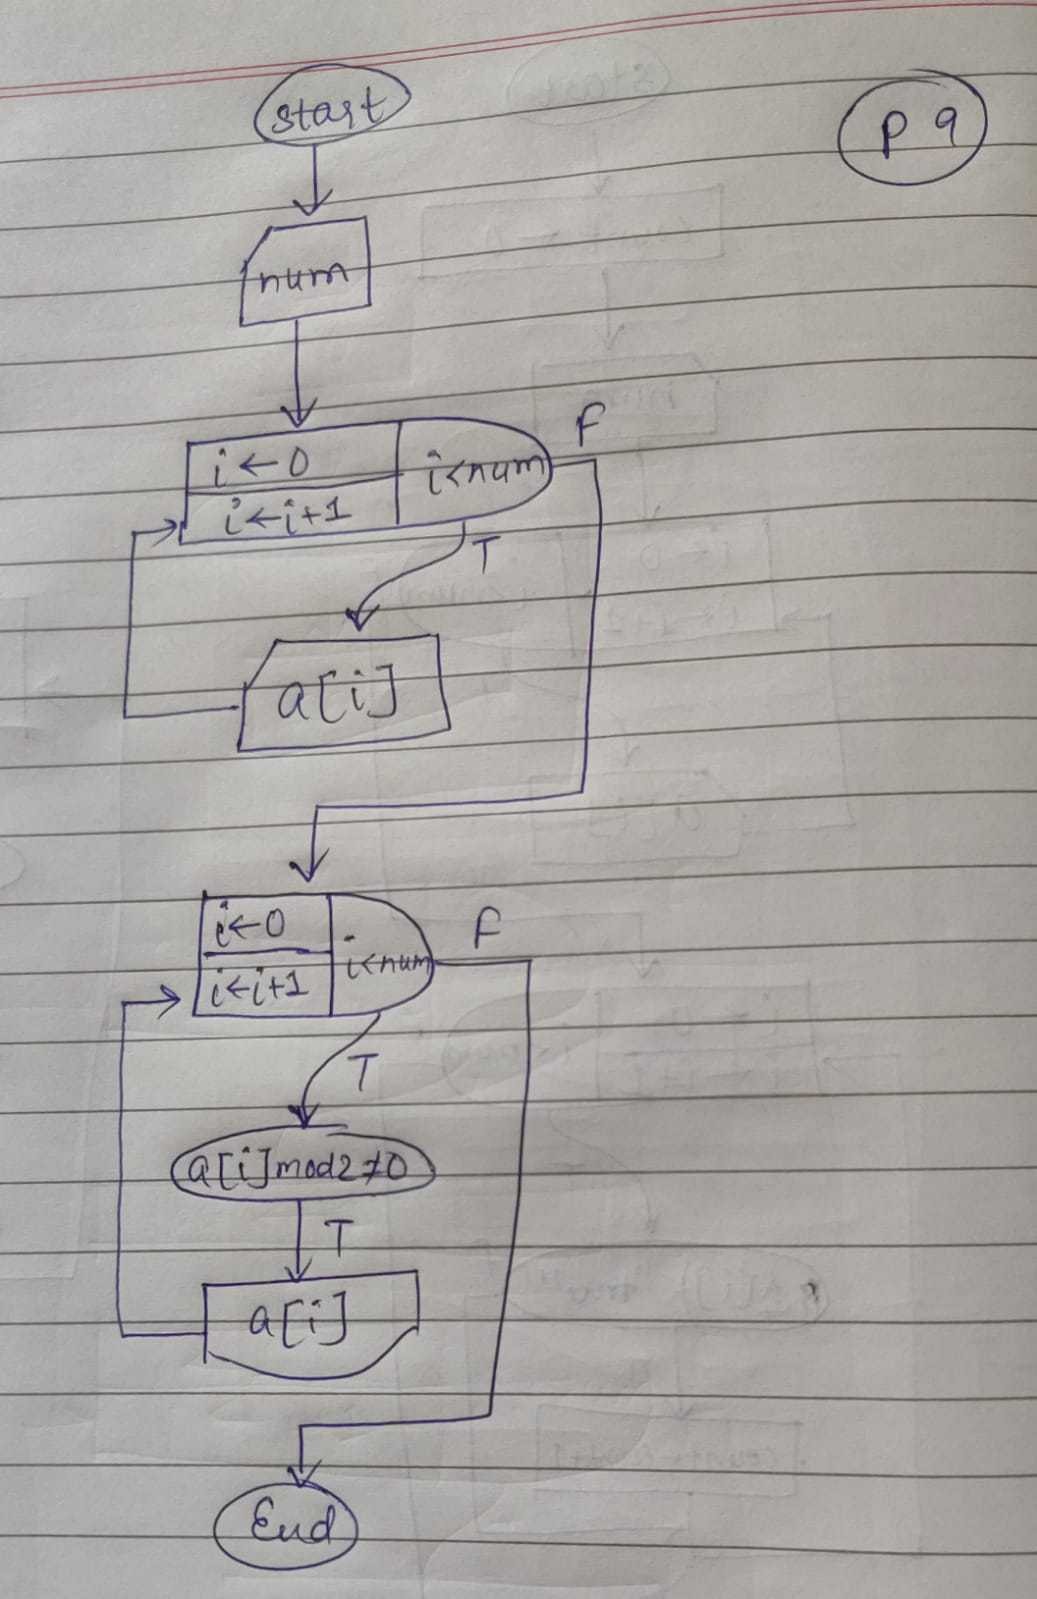 start
P 9
num
i ← 0
i ← i+1
i < num
F
T
a[i]
i ← 0
i ← i+1
i < num
F
T
a[i] mod 2 ≠ 0
T
a[i]
End